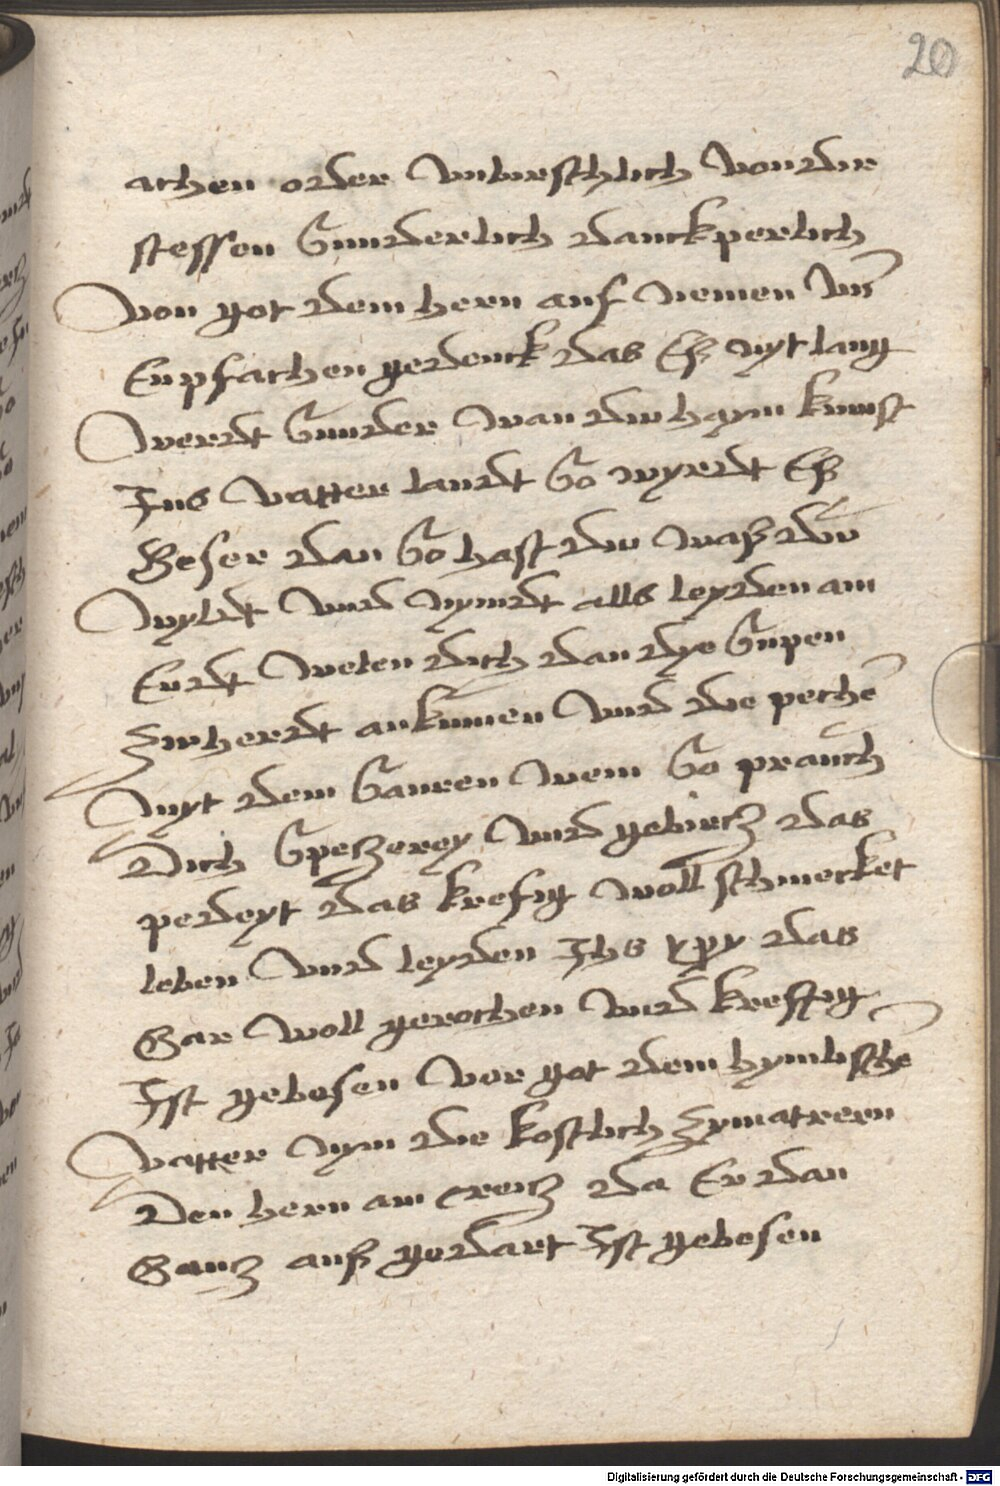 20
achen order unbirschlich von dir
stessen sunderlich danckperlich
von got dem hern auf nemen vnd
Enpfachen gedenck das Eß nyt lang
werdt sunder wan du haym kumst
Ins vatter landt so wyrdt Eß
Beser dan so hast du waß du
wyldt und nymdt alls leyden am
Endt welen dich dan dye supen
zu herdt ankumen und die pechē
myt dem sauren wem so prauch
Dich speczerey und gebircz das
pedeyt das krefig woll schmecket
leben und leyden Ihs xpy das
Gar woll gerochen und kreftig
Ist gebesen vor got dem hymlischē
vatter nym die kostlich zymatreren
Den hern am creicz da Er dan
Gancz auß gedart Ist gebesen
Digitalisierung gefördert durch die Deutsche Forschungsgemeinschaft - DFG